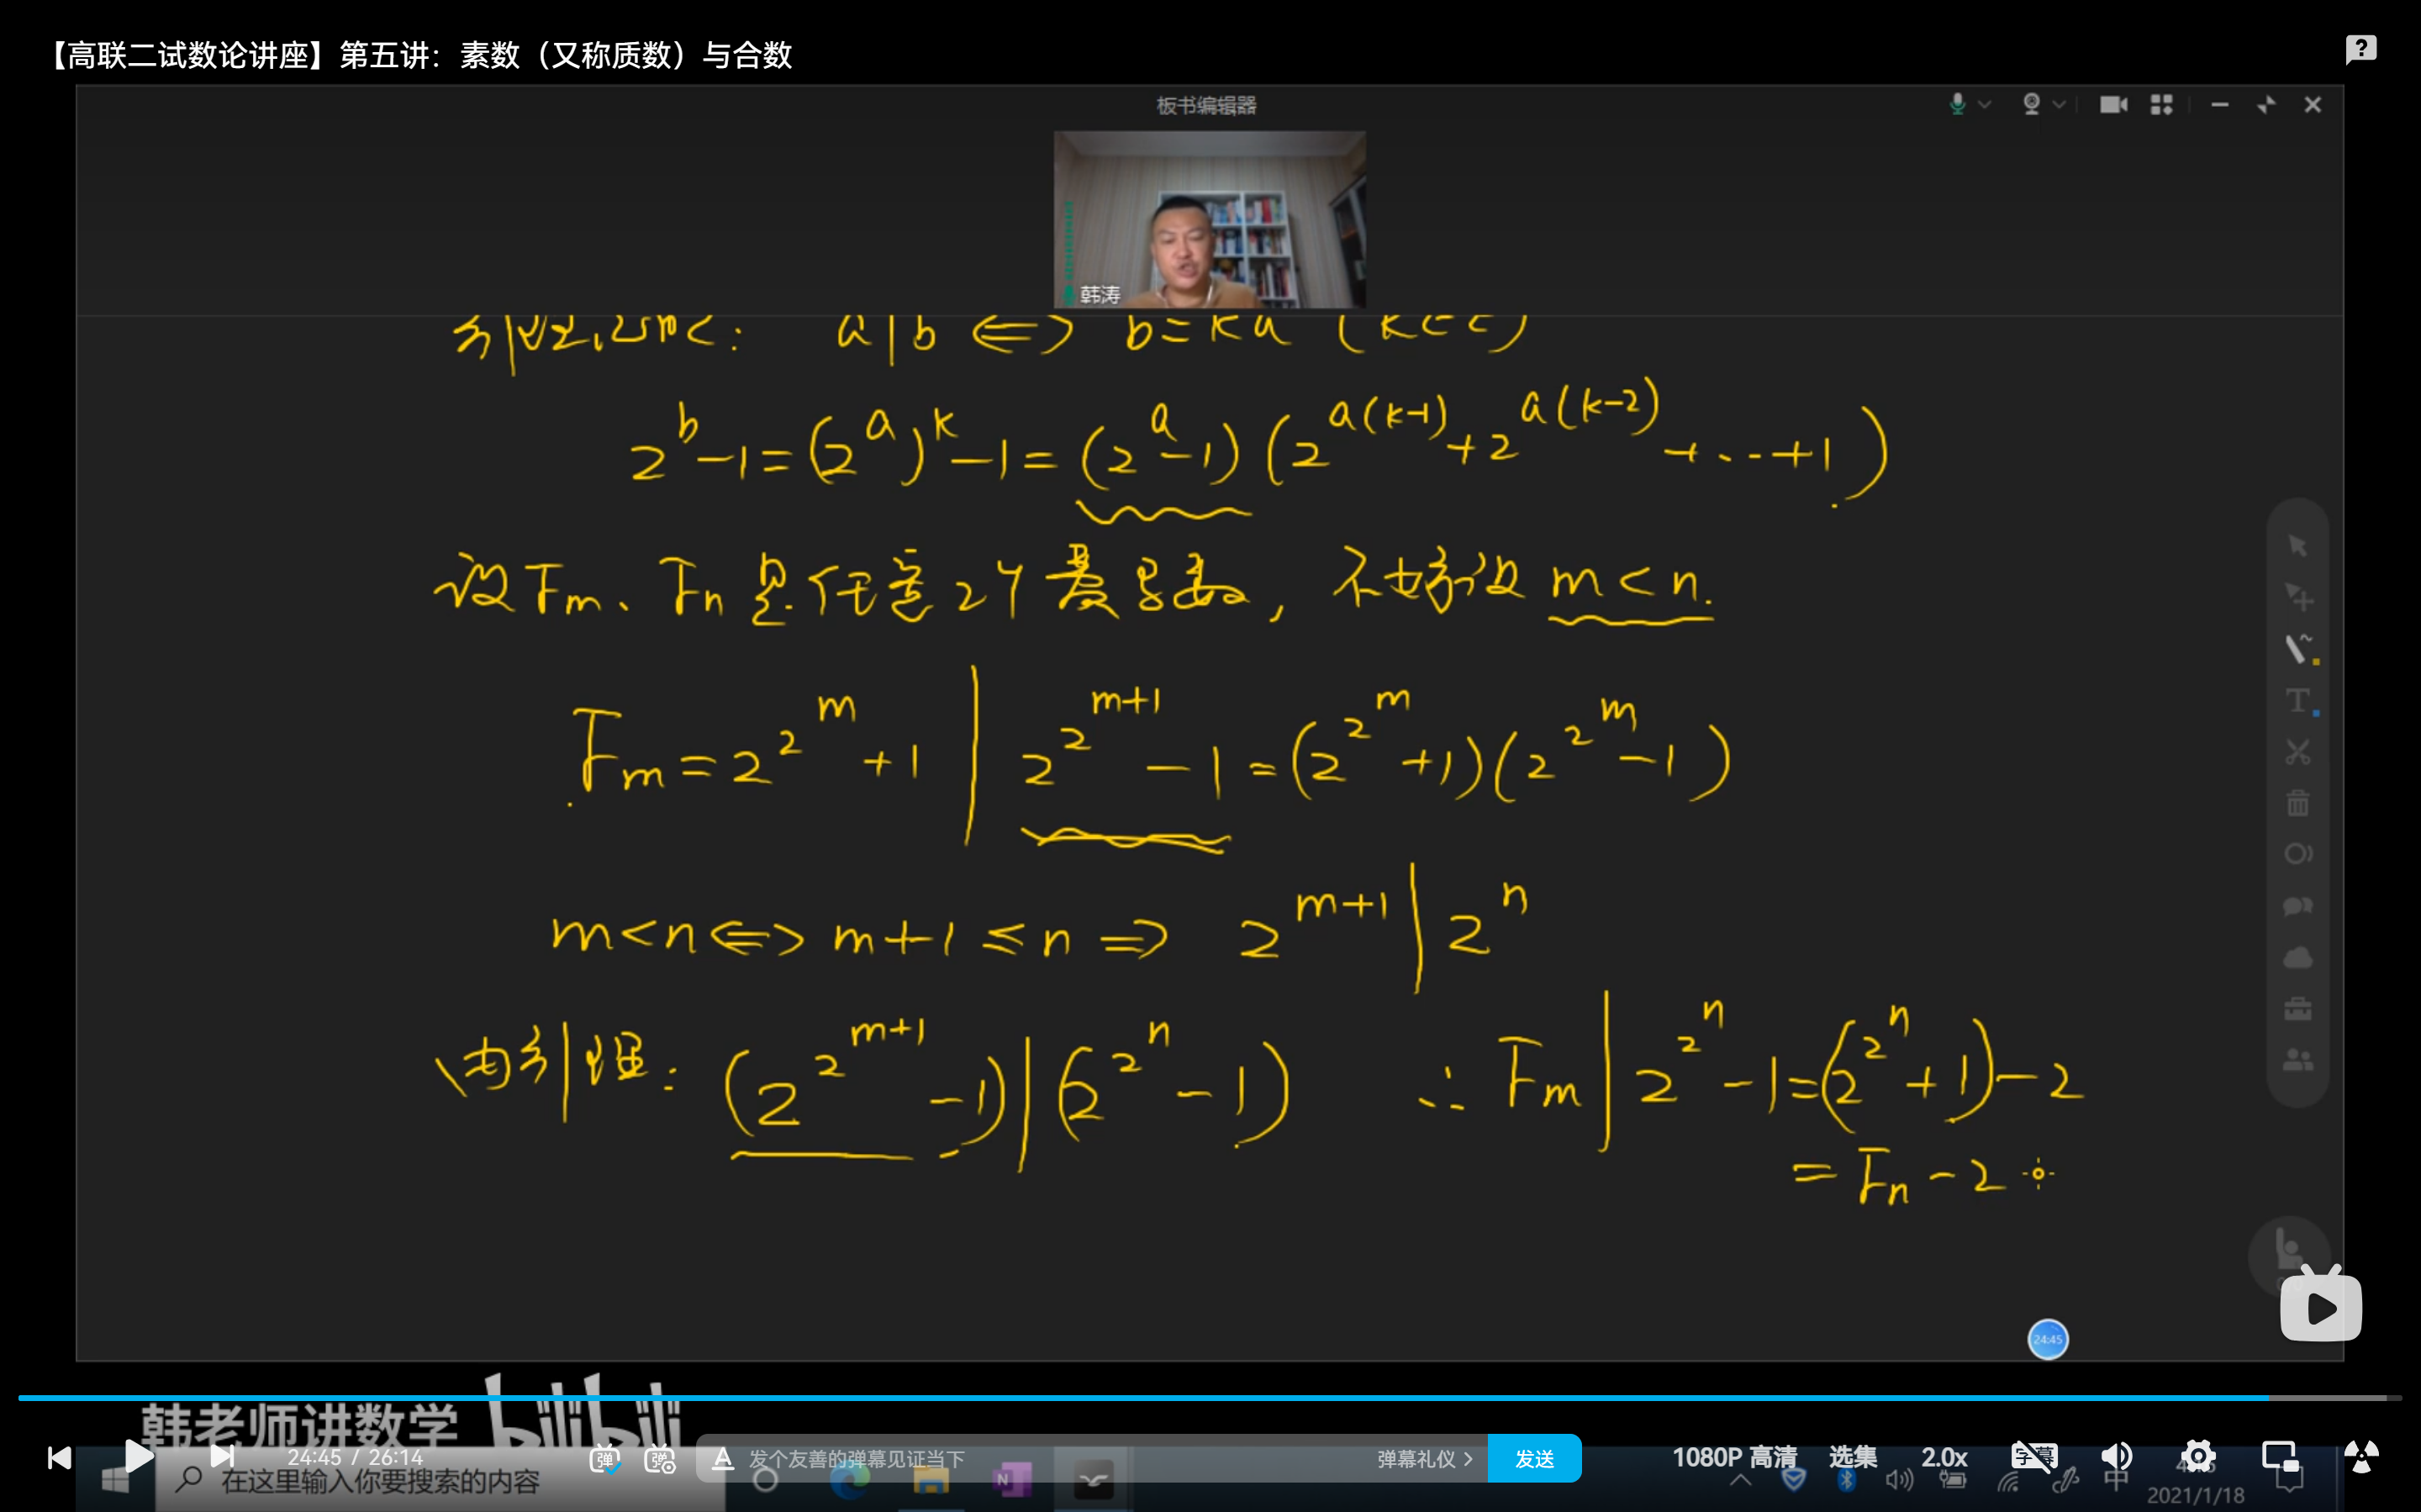 【高联二试数论讲座】第五讲：素数（又称质数）与合数
板书编辑器
韩涛
a|b ⟺ b=ka (k∈Z)
2^b-1=(2^a)^k-1=(2^a-1)(2^{a(k-1)}+2^{a(k-2)}+...+1)
设Fm、Fn是任意2个费马数，不妨设 m<n.
Fm=2^{2^m}+1 | 2^{2^{m+1}}-1=(2^{2^m}+1)(2^{2^m}-1)
m<n⟺m+1≤n⇒ 2^{m+1}|2^n
由引理: (2^{2^{m+1}}-1)|(2^{2^n}-1) ∴ Fm|2^{2^n}-1=(2^{2^n}+1)-2
=Fn-2
24:45
韩老师讲数学 bilibili
24:45 / 26:14
弹
弹
A 发个友善的弹幕见证当下
弹幕礼仪 >
发送
1080P 高清
选集
2.0x
字幕
在这里输入你要搜索的内容
中
2021/1/18